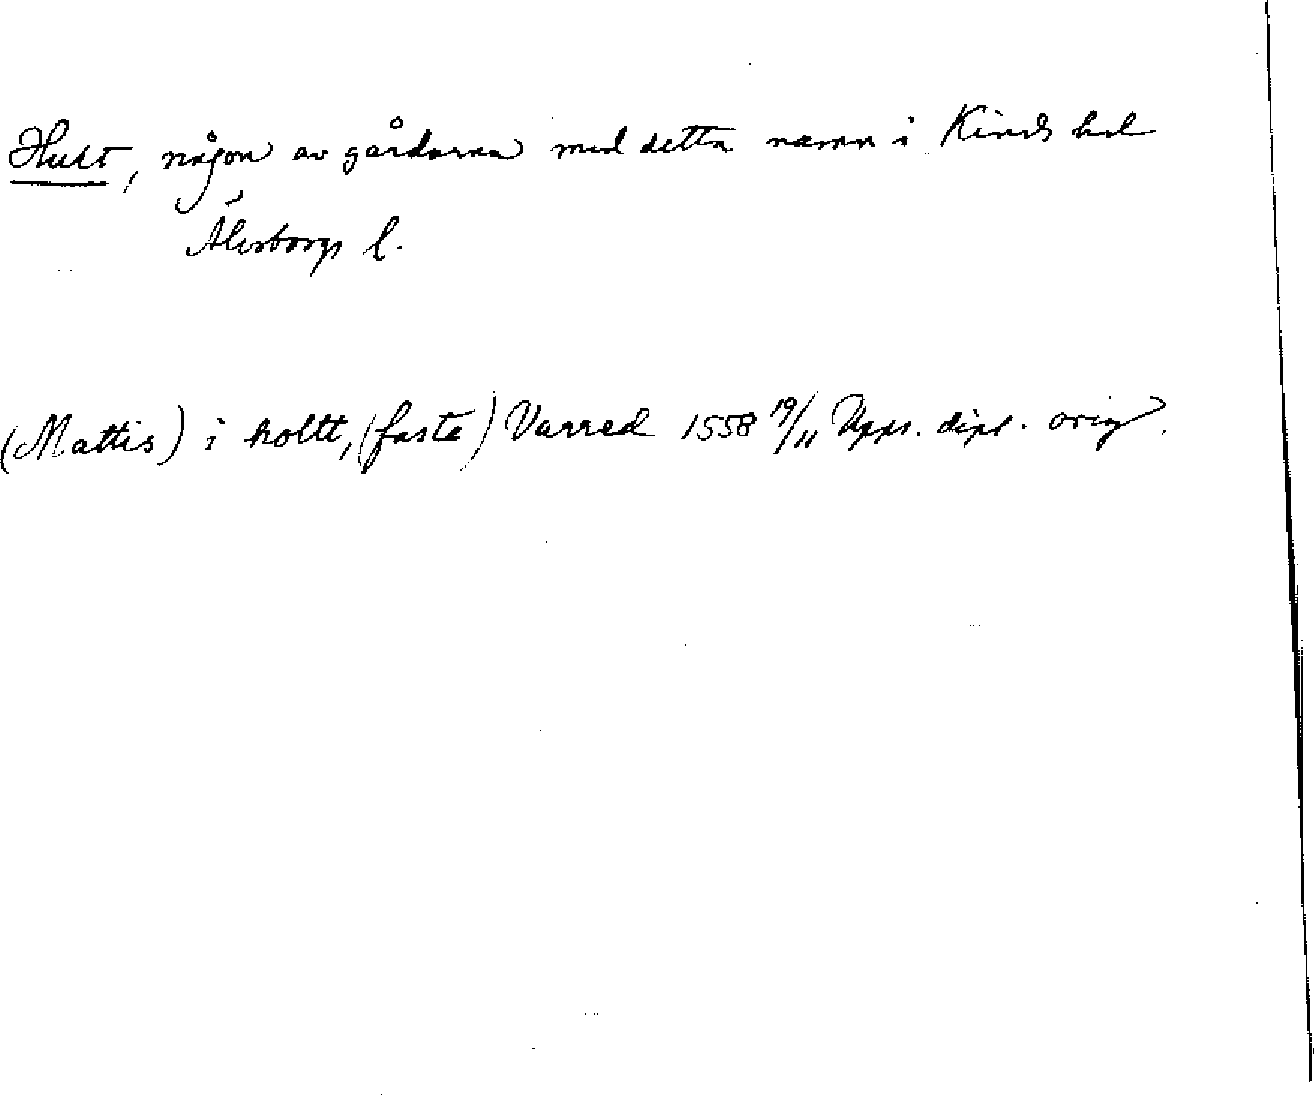 Hult, någon av gårdarna med detta namn i Kinds hd
Älvsborgs l.
(Mattis) i holtt, (faste) Varred 1558 19/11 Upps. dipl. orig.